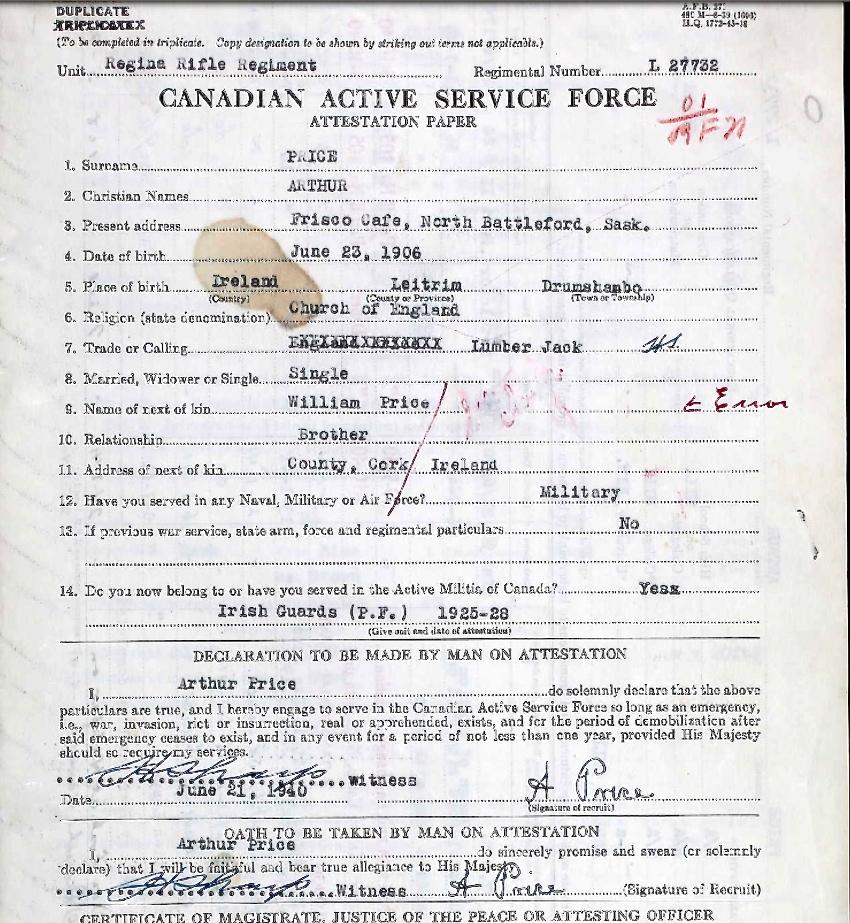 DUPLICATE
TRIPLICATE
A.F.B. 27
48C M-6-39 (1603)
H.Q. 1772-45-18
(To be completed in triplicate. Copy designation to be shown by striking out terms not applicable.)
Unit Regina Rifle Regiment Regimental Number L 27732
CANADIAN ACTIVE SERVICE FORCE
ATTESTATION PAPER
01
1. Surname PRICE
2. Christian Names ARTHUR
3. Present address Frisco Cafe, North Battleford, Sask.
4. Date of birth June 23, 1906
5. Place of birth Ireland Leitrim Drumshanbo
(Country) (County or Province) (Town or Township)
6. Religion (state denomination) Church of England
7. Trade or Calling Lumber Jack
8. Married, Widower or Single Single
9. Name of next of kin William Price ← Error
10. Relationship Brother
11. Address of next of kin County, Cork Ireland
12. Have you served in any Naval, Military or Air Force? Military
13. If previous war service, state arm, force and regimental particulars No
14. Do you now belong to or have you served in the Active Militia of Canada? Yesx
Irish Guards (P.F.) 1925-28
(Give unit and date of attestation)
DECLARATION TO BE MADE BY MAN ON ATTESTATION
I, Arthur Price do solemnly declare that the above
particulars are true, and I hereby engage to serve in the Canadian Active Service Force so long as an emergency,
i.e., war, invasion, riot or insurrection, real or apprehended, exists, and for the period of demobilization after
said emergency ceases to exist, and in any event for a period of not less than one year, provided His Majesty
should so require my services.
Witness
Date June 21, 1940 A Price
(Signature of recruit)
OATH TO BE TAKEN BY MAN ON ATTESTATION
I, Arthur Price do sincerely promise and swear (or solemnly
declare) that I will be faithful and bear true allegiance to His Majesty.
Witness A Price (Signature of Recruit)
CERTIFICATE OF MAGISTRATE, JUSTICE OF THE PEACE OR ATTESTING OFFICER